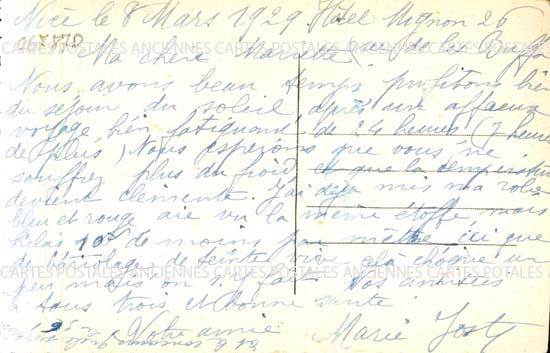 Nice le 8 Mars 1929 Hôtel Mignon 26
Ma chère Marcelle (rue de la Buffa
Nous avons beau temps profitons bien
du séjour du soleil après un affreux
voyage bien fatiguant de 24 heures (7 heures
de plus) Nous espérons que vous ne
souffrez plus du froid et que la température
devient clémente. J'ai déjà mis ma robe
bleu et rouge aie vu la même étoffe mais
hélas 10f de moins par mètre ici que
de teinte vive cela choque un
peu mais on s'y fait Vos amitiés
à tous trois et bonne santé
Votre amie Marie Josty
067770
CARTES POSTALES ANCIENNES CARTES POSTALES ANCIENNES CARTES POSTALES